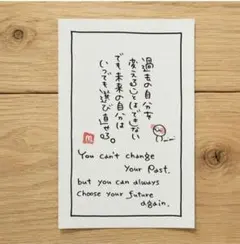 過去の自分を
変えることはできない
でも未来の自分は
いつでも選び直せる。
You can't change
Your Past.
but you can always
choose your future
again.